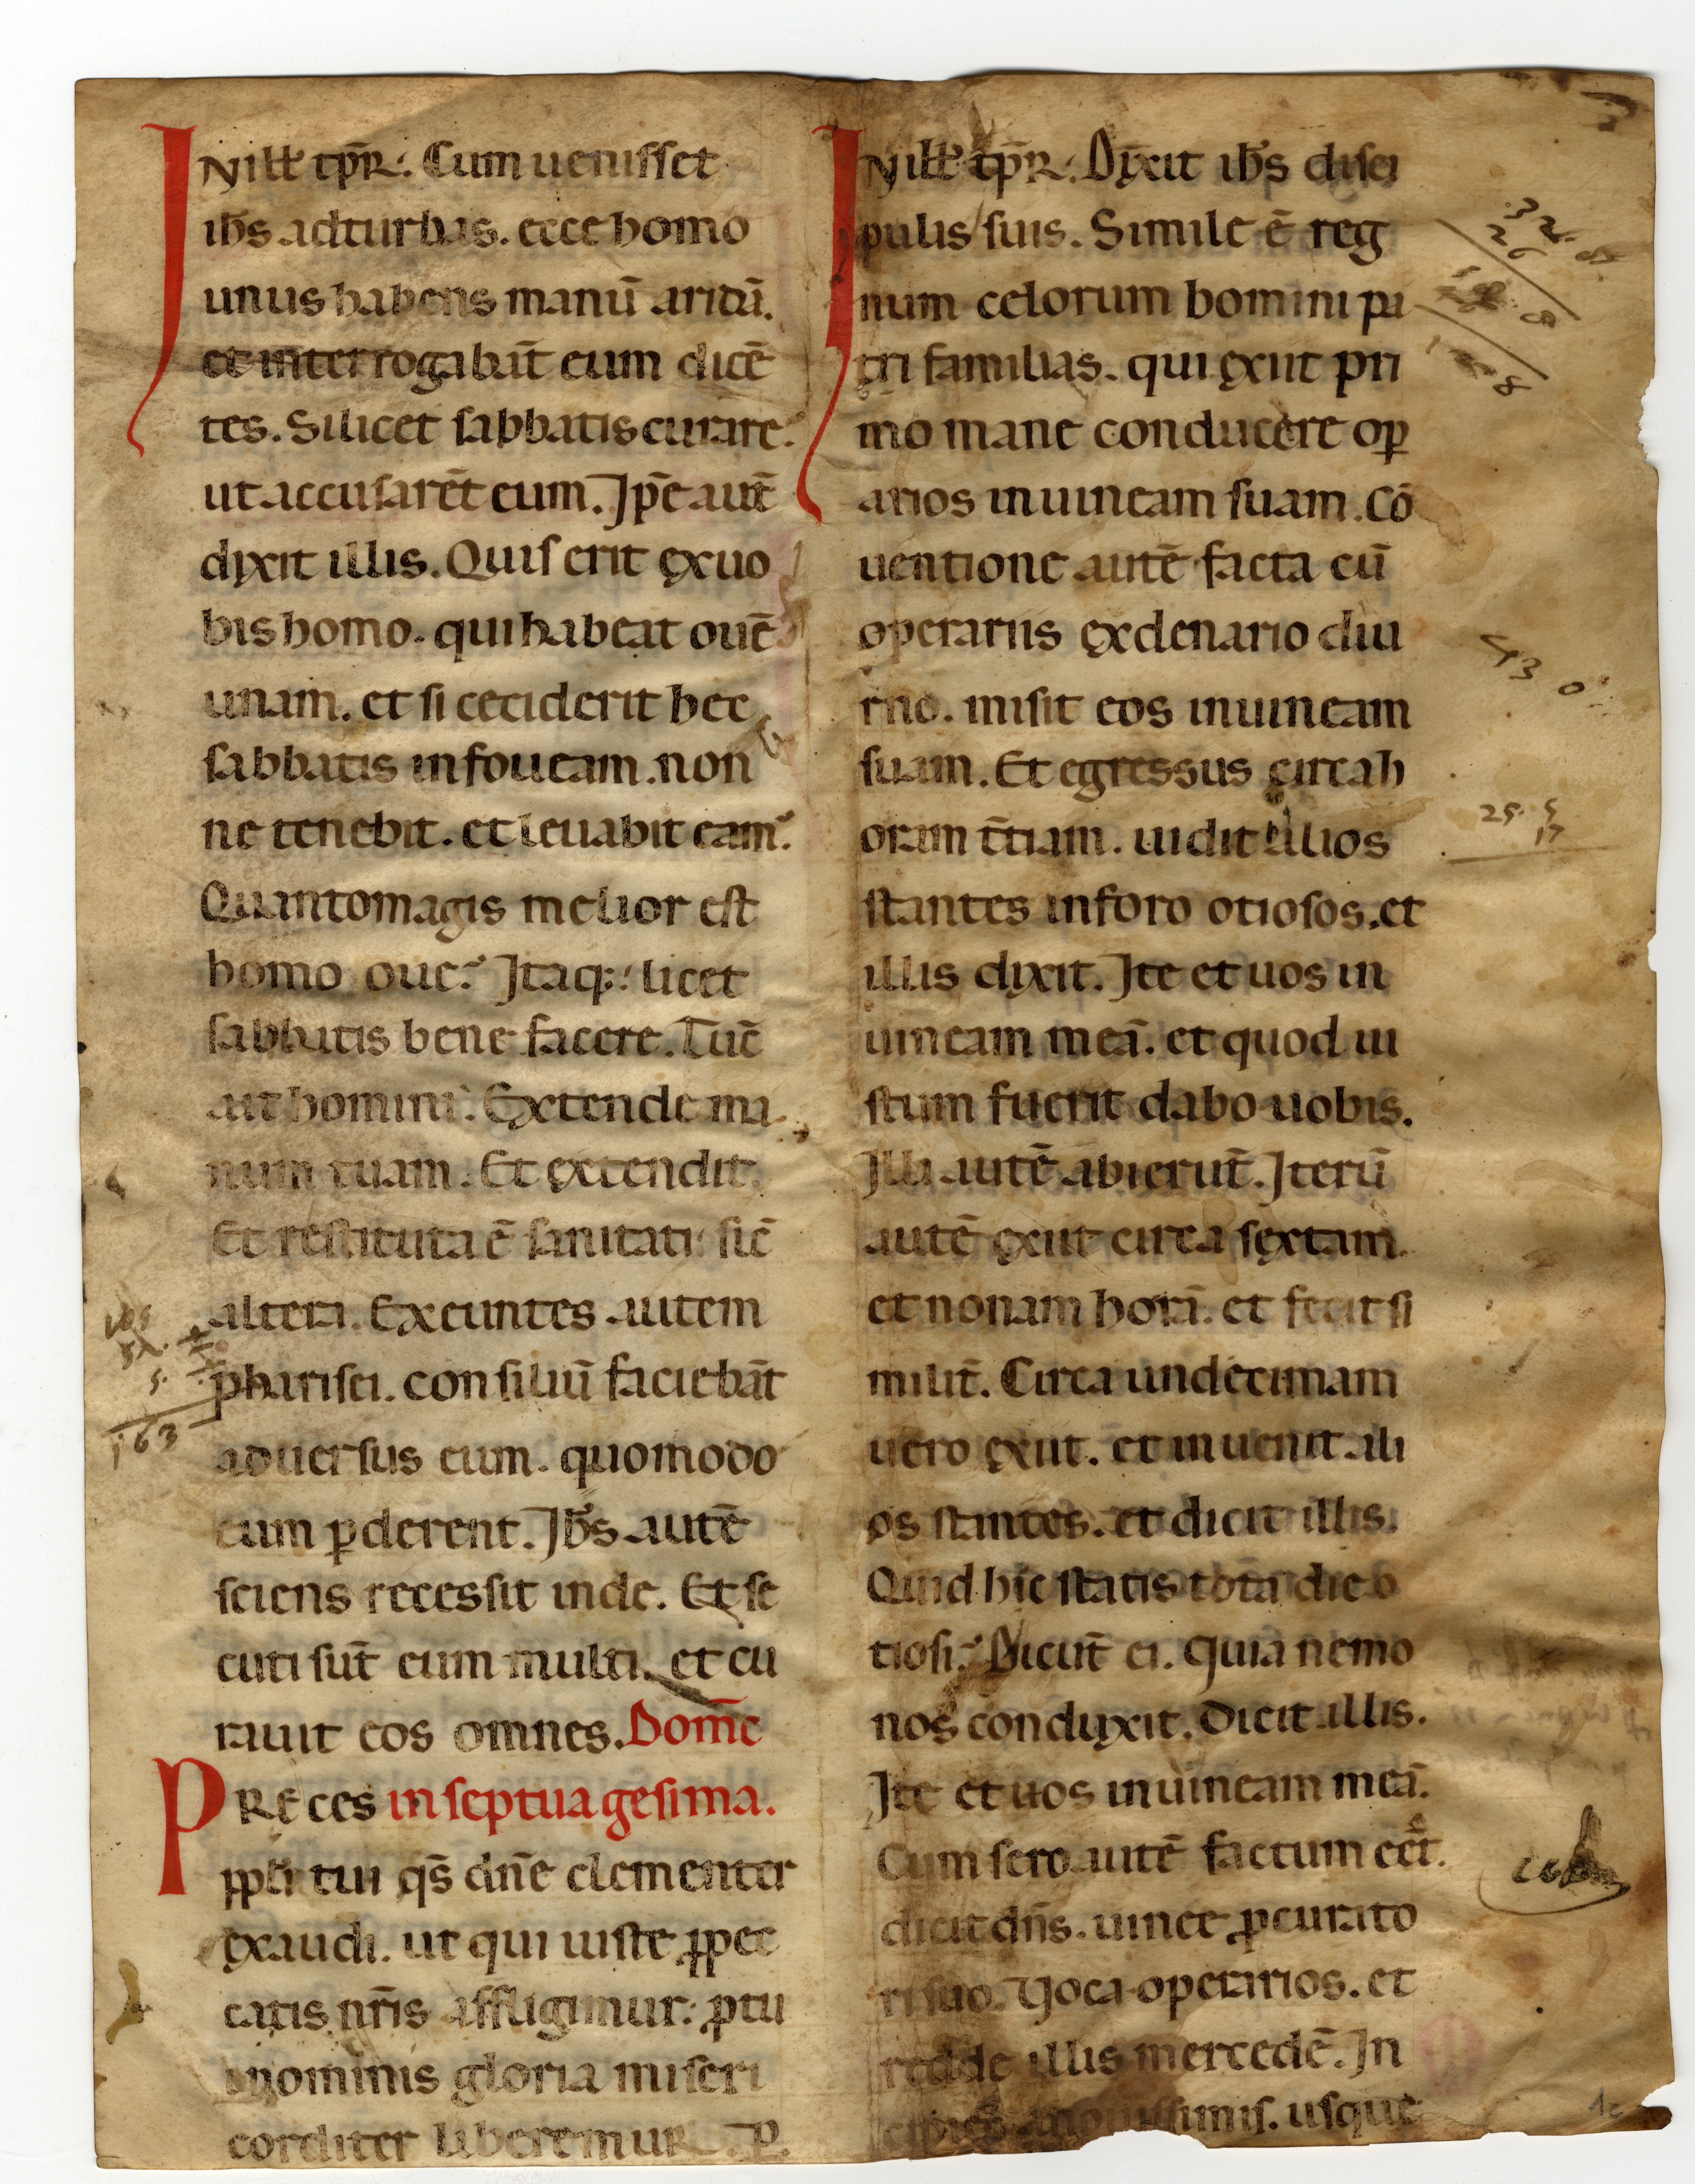 INill' tp̄R. Cum uenisset
ih̄s adturbas. ecce homo
unus habens manū aridā.
et interrogabāt eum dicē
tes. Si licet sabbatis curare.
ut accusarēt eum. Ip̄e autē
dixit illis. Quis erit exuo
bis homo. qui habeat ouē
unam. et si ceciderit hec
sabbatis in foueam. non
ne tenebit. et leuabit eam.
Quantomagis melior est
homo oue. Itaq; licet
sabbatis bene facere. Tūc
ait homini. Extende ma
num tuam. Et extendit.
Et restituta ē sanitati sic̄
altera. Exeuntes autem
pharisei. consiliū faciebāt
aduersus eum. quomodo
eum ꝑderent. Ih̄s autē
sciens recessit inde. Et se
cuti sūt eum multi. et cu
rauit eos omnes. Dom̄c
PREces in septuagesima.
ppl̄i tui qs̄ dn̄e clementer
exaudi. ut qui iuste ꝓ pec
catis nr̄is affligimur. ꝓ tu
i nominis gloria miseri
corditer liberemur. P.
INill' tp̄R. Dixit ih̄s disci
pulis suis. Simile ē reg
num celorum homini pa
tri familias. qui exiit pri
mo mane conducere oꝑ
arios in uineam suam. Cō
uentione autē facta cū
operariis ex denario diu
rno. misit eos in uineam
suam. Et egressus circa h
oram t̄tiam. uidit alios
stantes in foro otiosos. et
illis dixit. Ite et uos in
uineam meā. et quod iu
stum fuerit dabo uobis.
Illi autē abierūt. Iterū
autē exiit circa sextam
et nonam horā. et fecit si
milit̄. Circa undecimam
uero exiit. et inuenit ali
os stantes. et dicit illis.
Quid hic statis tota die o
tiosi. Dicūt ei. Quia nemo
nos conduxit. Dicit illis.
Ite et uos in uineam meā.
Cum sero autē factum eēt.
dicit dn̄s. uinee ꝓcurato
ri suo. Voca operarios. et
redde illis mercedē. In
cipiens a nouissimis. usque
163
43 0
25. 5
17